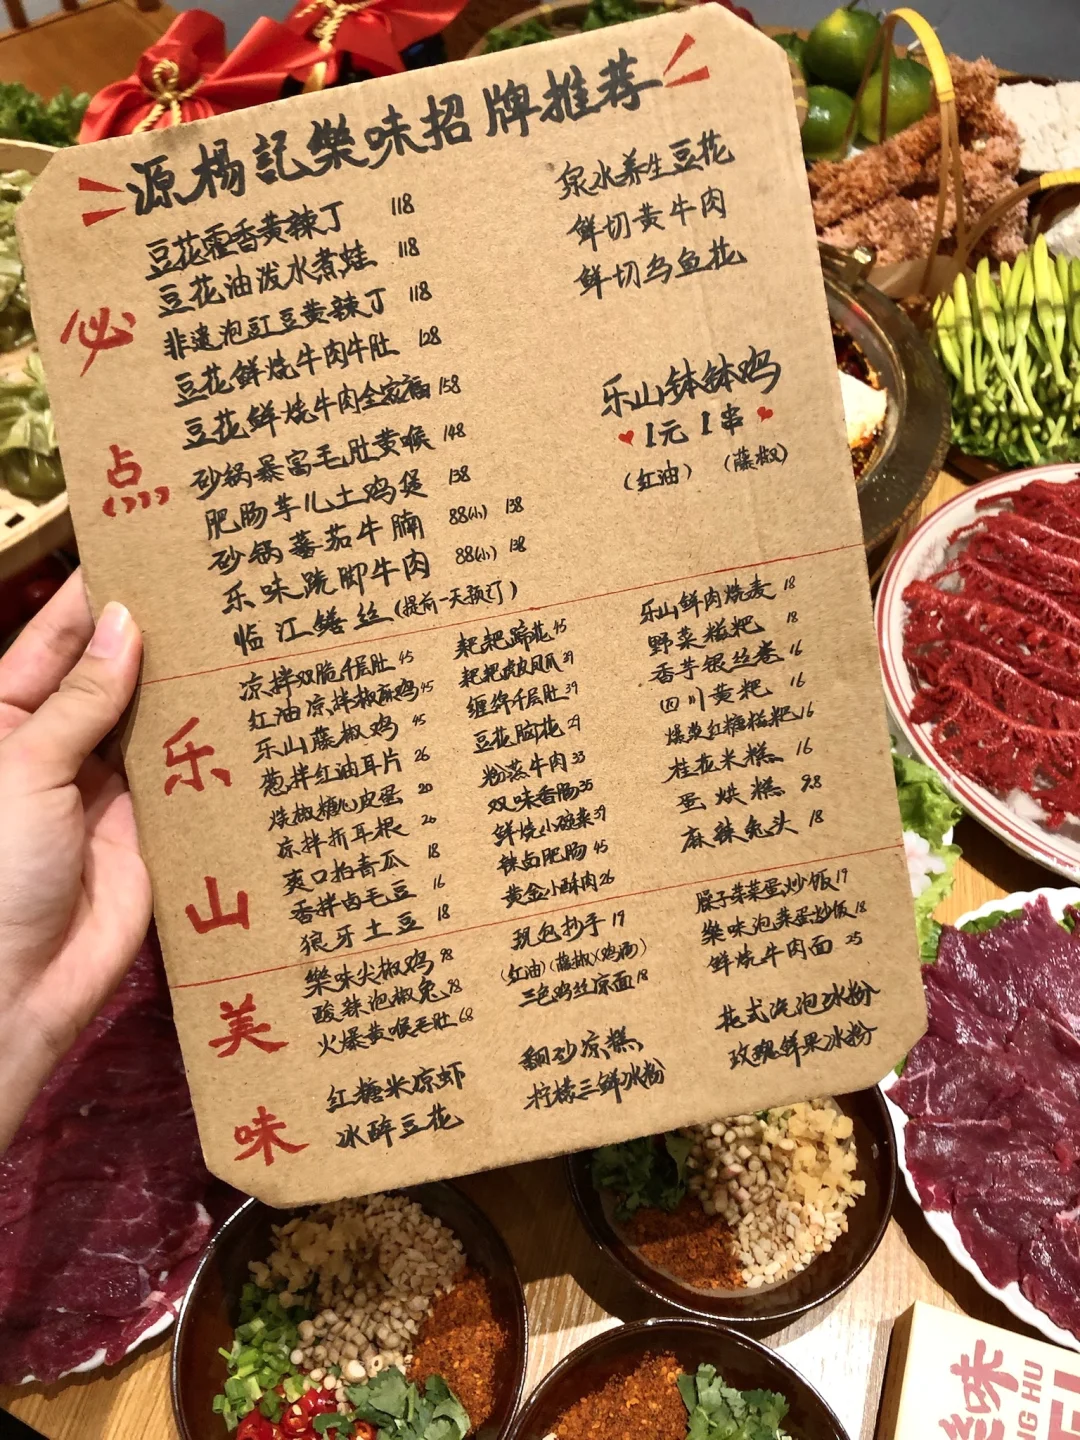 源楊記樂味招牌推荐
必点
豆花藿香黄辣丁 118
豆花油泼水煮蛙 118
非遗泡豇豆黄辣丁 118
豆花鲜烧牛肉牛肚 128
豆花鲜烧牛肉全家福 158
砂锅暴富毛肚黄喉 148
肥肠芋儿土鸡煲 138
砂锅蕃茄牛腩 88(小) 138
乐味跷脚牛肉 88(小) 138
临江鳝丝(提前一天预订)
泉水养生豆花
鲜切黄牛肉
鲜切乌鱼花
乐山钵钵鸡
1元1串
(红油) (藤椒)
乐山美味
凉拌双脆千层肚 45
红油凉拌椒麻鸡 45
乐山藤椒鸡 45
葱拌红油耳片 26
烧椒糖心皮蛋 20
凉拌折耳根 20
爽口拍青瓜 18
香拌卤毛豆 16
狼牙土豆 18
粑粑蹄花 45
粑粑虎皮凤爪 39
缠绵千层肚 39
豆花脑花 29
粉蒸牛肉 33
双味香肠 35
鲜烧小碗杂 39
辣卤肥肠 45
黄金小酥肉 26
乐山鲜肉烧麦 18
野菜糍粑 18
香芋银丝卷 16
四川黄粑 16
爆浆红糖糍粑 16
桂花米糕 16
蛋烘糕 9.8
麻辣兔头 18
樂味尖椒鸡 98
酸辣泡椒兔 98
火爆黄喉毛肚 68
现包抄手 19
(红油)(藤椒)(鸡汤)
三色鸡丝凉面 18
臊子芽菜蛋炒饭 19
樂味泡菜蛋炒饭 18
鲜烧牛肉面 25
红糖米凉虾
冰醉豆花
翻砂凉糕
柠檬三鲜冰粉
花式汽泡冰粉
玫瑰鲜果冰粉
味
NG HU